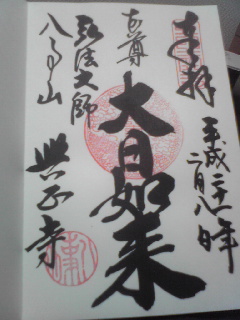 奉拝
平成二十一年
二月八日
本尊
大日如来
弘法大師
八事山
興正寺